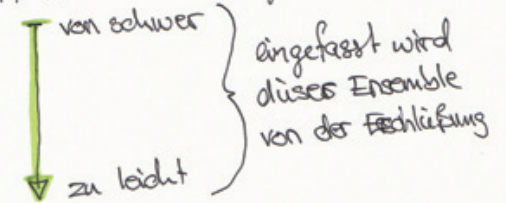 von schwer
zu leicht
eingefasst wird
dieses Ensemble
von der Erschließung